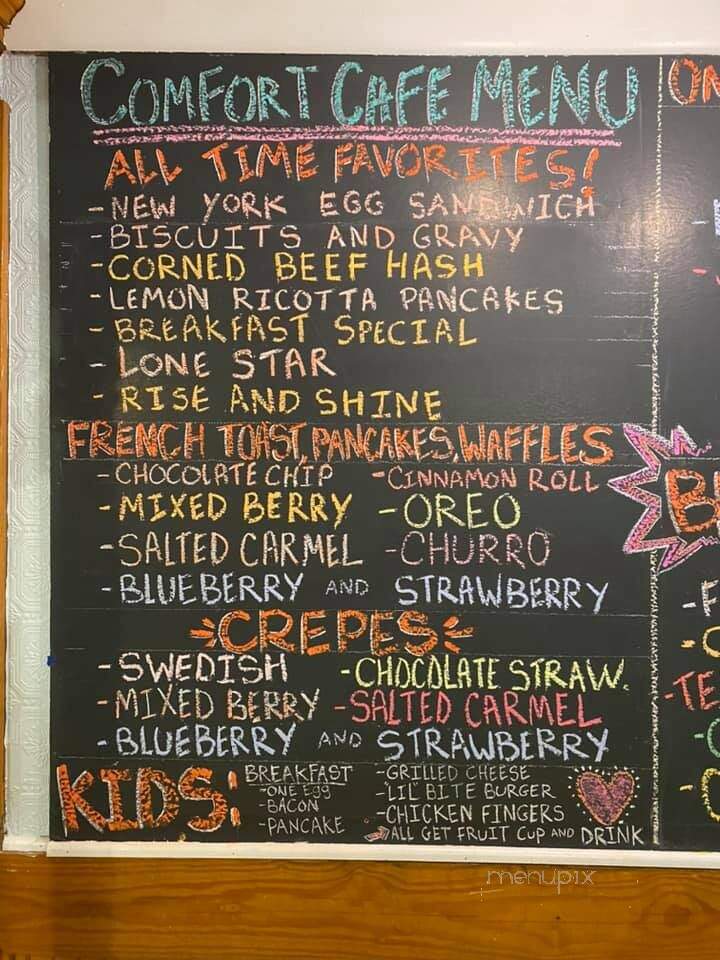 COMFORT CAFE MENU
ALL TIME FAVORITES!
- NEW YORK EGG SANDWICH
- BISCUITS AND GRAVY
- CORNED BEEF HASH
- LEMON RICOTTA PANCAKES
- BREAKFAST SPECIAL
- LONE STAR
- RISE AND SHINE
FRENCH TOAST, PANCAKES, WAFFLES
- CHOCOLATE CHIP - CINNAMON ROLL
- MIXED BERRY - OREO
- SALTED CARMEL - CHURRO
- BLUEBERRY AND STRAWBERRY
CREPES
- SWEDISH - CHOCOLATE STRAW.
- MIXED BERRY - SALTED CARMEL
- BLUEBERRY AND STRAWBERRY
KIDS:
BREAKFAST
- ONE EGG
- BACON
- PANCAKE
- GRILLED CHEESE
- 'LIL' BITE BURGER
- CHICKEN FINGERS
ALL GET FRUIT CUP AND DRINK
ON
B
TE
menupix